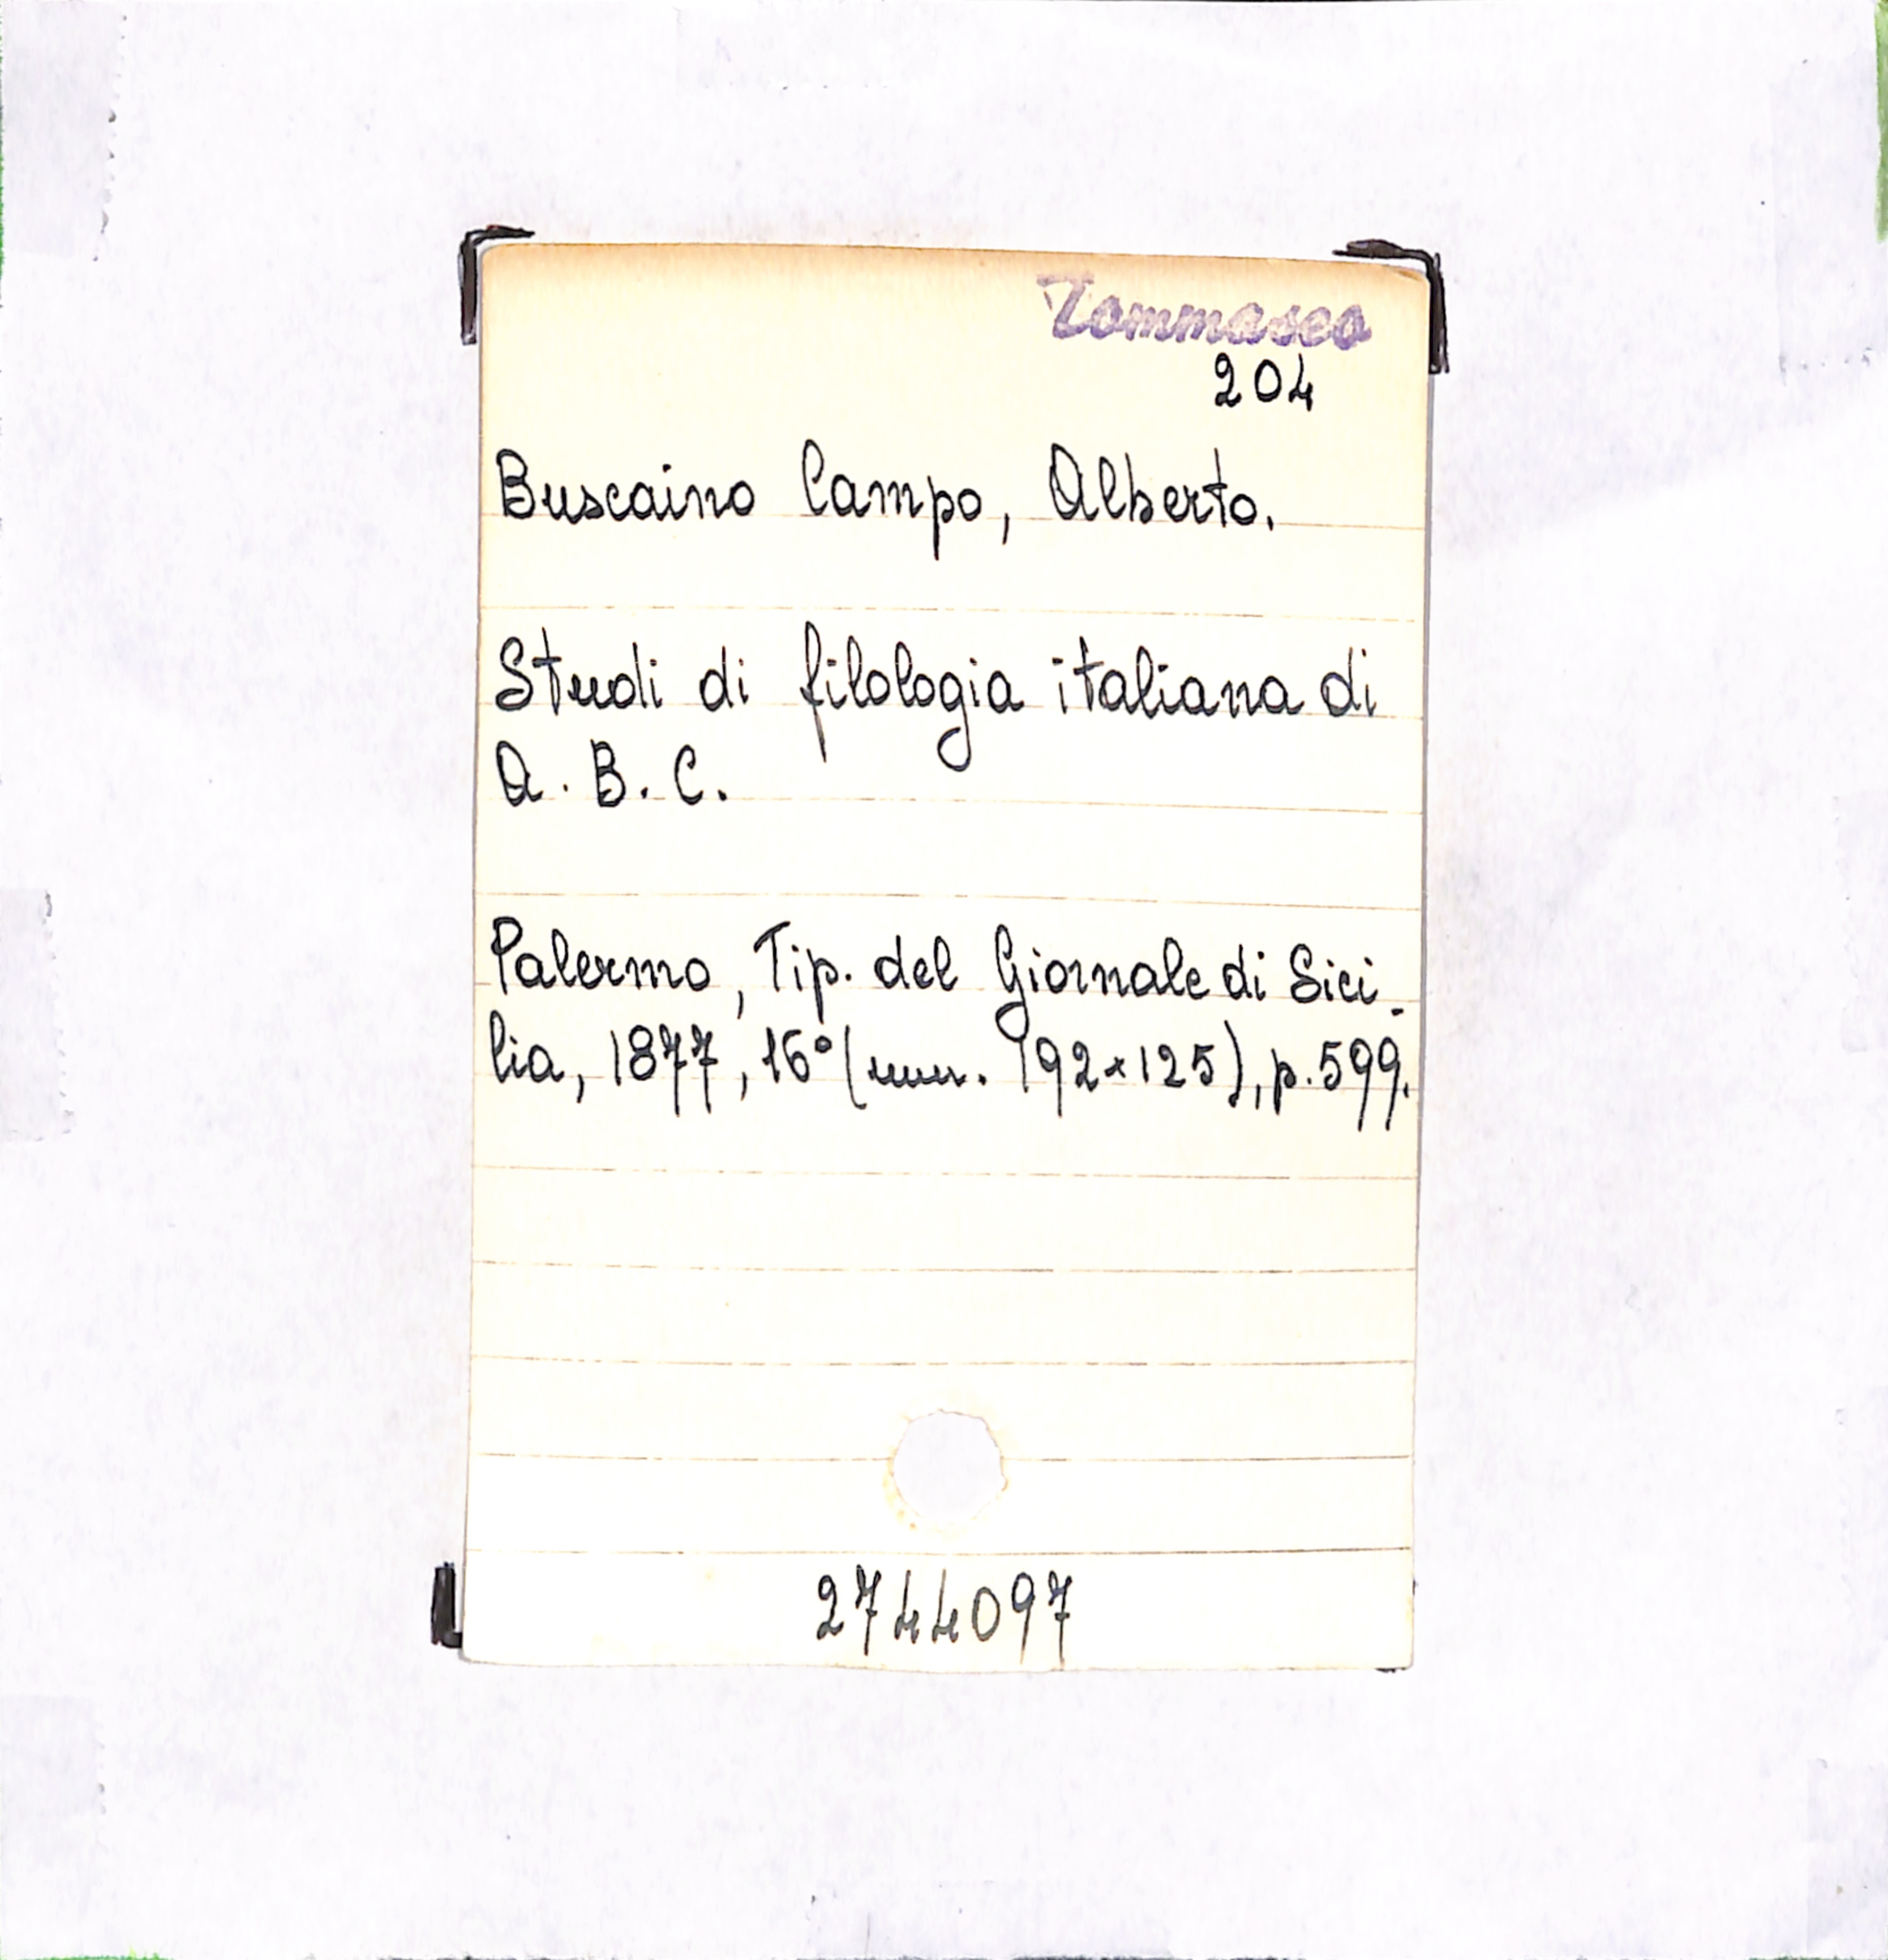 Tommaseo
204
Buscaino Campo, Alberto.
Studi di filologia italiana di
A. B. C.
Palermo, Tip. del Giornale di Sici-
lia, 1877, 16° (mm. 192×125), p. 599.
2744097